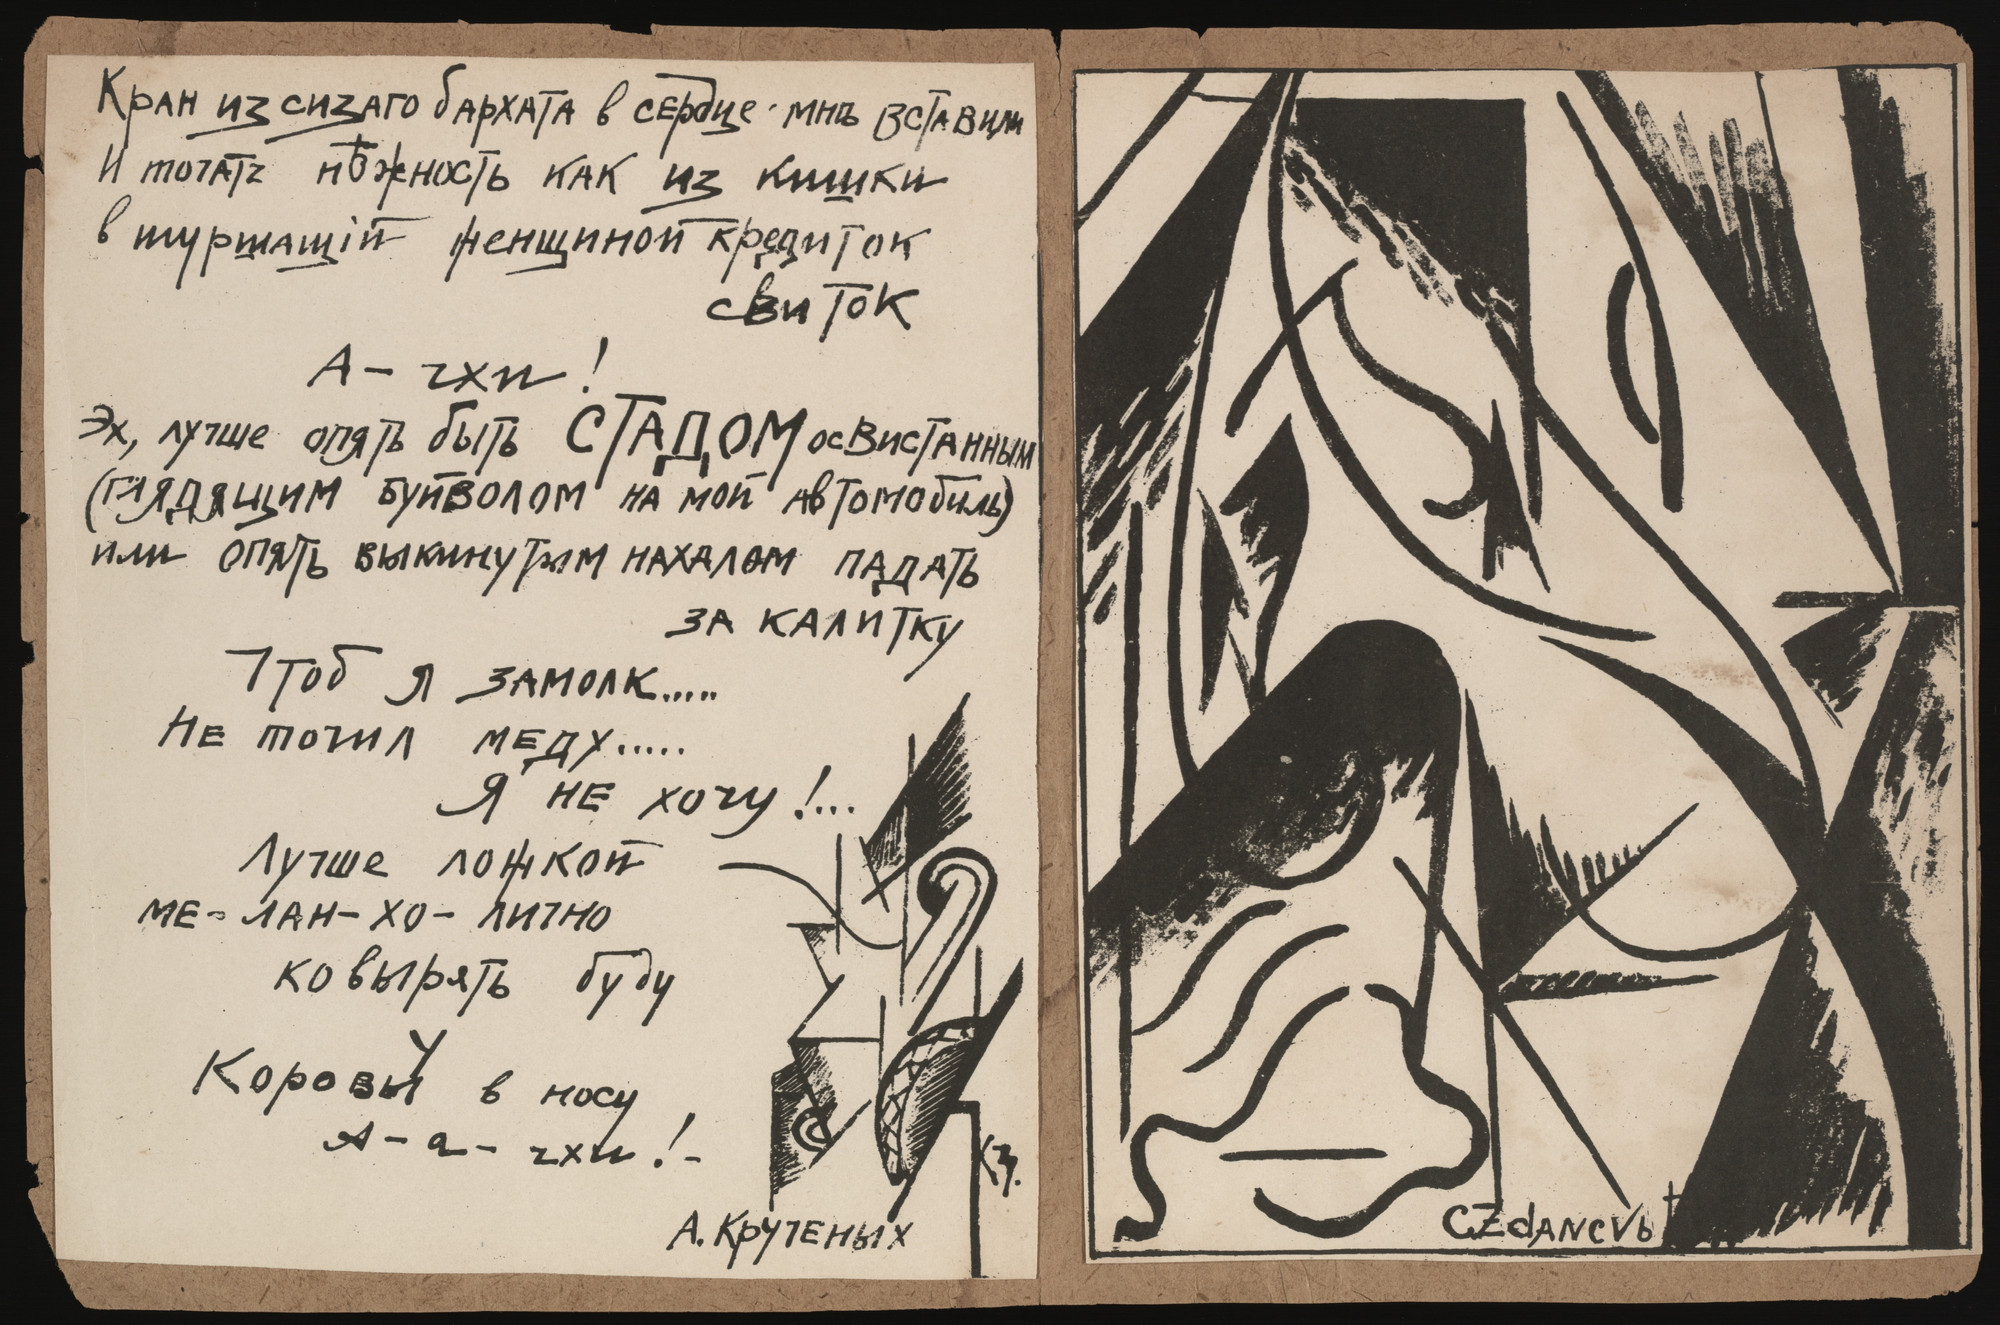 Кран из сизаго бархата в сердце мнѣ вставили
И точатъ нѣжность как из кишки
в шуршащій женщиной кредиток
свиток
А - чхи!
Эх, лучше опять быть СТАДОМ освистанным
(глядящим буйволом на мой автомобиль)
или опять выкинутым нахалом падать
за калитку
Чтоб я замолк.....
Не точил меду.....
Я не хочу!...
Лучше ложкой
ме-лан-хо-лично
ковырять буду
У
Коровы в носу
А-а-чхи!-
КЗ.
А. Крученых
CZdANCVb